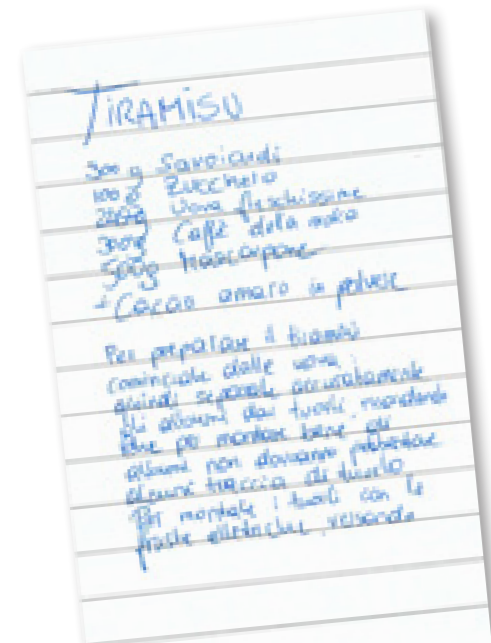 TIRAMISU
300 g Savoiardi
100 g Zucchero
Uova freschissime
300g Caffè della moka
500g Mascarpone
+ Cacao amaro in polvere
Per preparare il tiramisù
cominciate dalle uova:
quindi separate accuratamente
gli albumi dai tuorli, ricordando
che per montare bene gli
albumi non dovranno presentare
alcuna traccia di tuorlo.
Poi montate i tuorli con le
fruste elettriche, versando